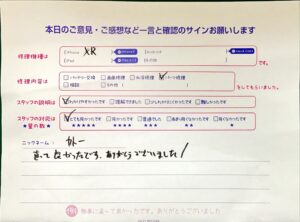 本日のご意見・ご感想など一言と確認のサインお願いします
修理機種は
iPhone XR
iPad
その他
です。
修理内容は
バッテリー交換
画面修理
水没修理
その他
をしてもらいました。
スタッフの説明は
わかりやすかったです
理解できました
少しわかりにくかったです
難しかったです
スタッフの対応は
★星の数
とても良かったです
良かったです
普通でした
あまり良くなかったです
良くなかったです
★★★★★
★★★★
★★★
★★
★
ニックネーム：
直って良かったです。ありがとうございました！
無事に直って良かったです。ありがとうございました